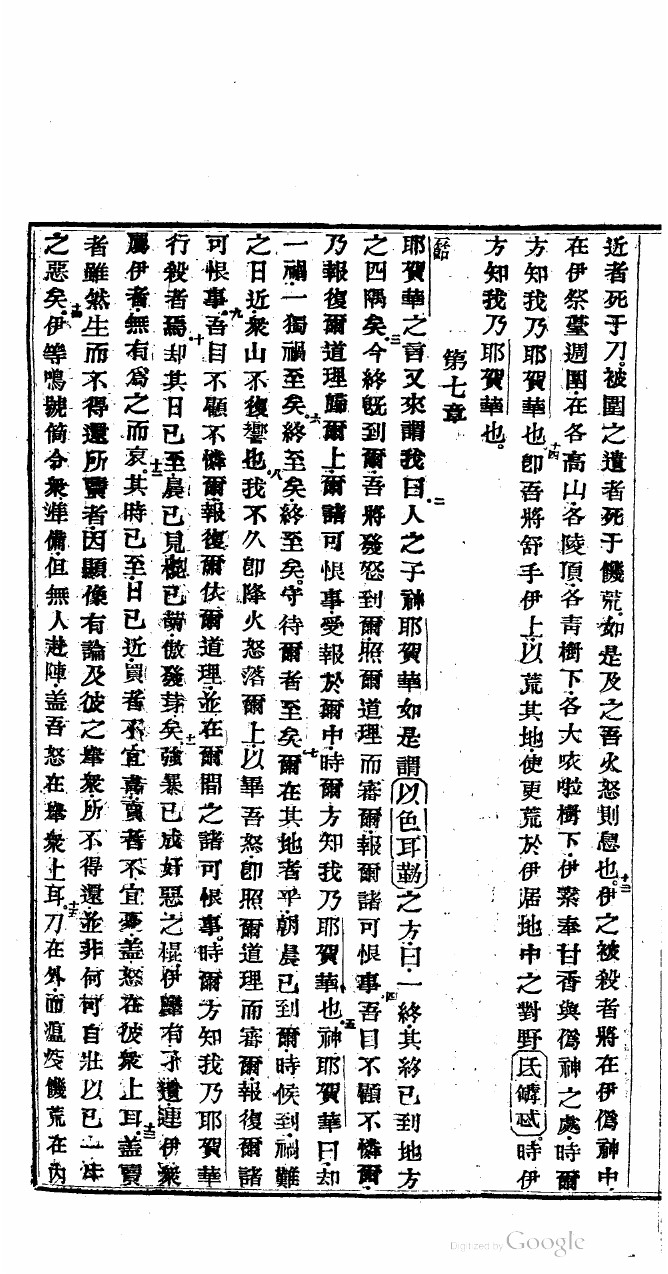 近者死于刀。被圍之遺者死于饑荒。如是及之吾火怒則息也。十三伊之被殺者將在伊僞神中.
在伊祭臺週圍.在各高山.各陵頂.各靑樹下.各大㕈啦樹下.伊素奉甘香與僞神之處.時爾
方知我乃耶賀華也。十四卽吾將舒手伊上.以荒其地.使更荒於伊居地中之對野氐罅忒。時伊
方知我乃耶賀華也。
第七章
耶賀華之言又來謂我曰.二人之子神耶賀華如是謂以色耳勒之方曰.一終.其終已到地方
之四隅矣.三今終旣到爾.吾將發怒到爾.照爾道理而審爾報爾諸可恨事.四吾目不顧不憐爾.
乃報復爾道理歸爾上.爾諸可恨事受報於爾中.時爾方知我乃耶賀華也.五神耶賀華曰.却
一禍.一獨禍至矣.六終至矣.終至矣。守待爾者至矣.七爾在其地者乎.朝晨已到爾.時候到.禍難
之日近.衆山不復響也.八我不久卽降火怒落爾上.以畢吾怒.卽照爾道理而審爾.報復爾諸
可恨事.九吾目不顧不憐爾.報復爾依爾道理.並在爾間之諸可恨事。時爾方知我乃耶賀華
行殺者焉.十却其日已至.晨已見.棍已菊.傲發芽矣.十一強暴已成奸惡之棍.伊屬有孑遺.連伊衆
屬伊者.無有爲之而哀.十二其時已至.日已近.買者不宜喜.賣者不宜憂.盖怒在彼衆上耳.十三盖賣
者雖然生而不得還所賣者.因顯像有論及彼之羣衆.所不得還.並非何可自壯以已一生
之惡矣.十四伊等鳴號筒令衆準備.但無人赴陣.盖吾怒在羣衆上耳.十五刀在外.而瘟疫饑荒在內
Digitized by Google